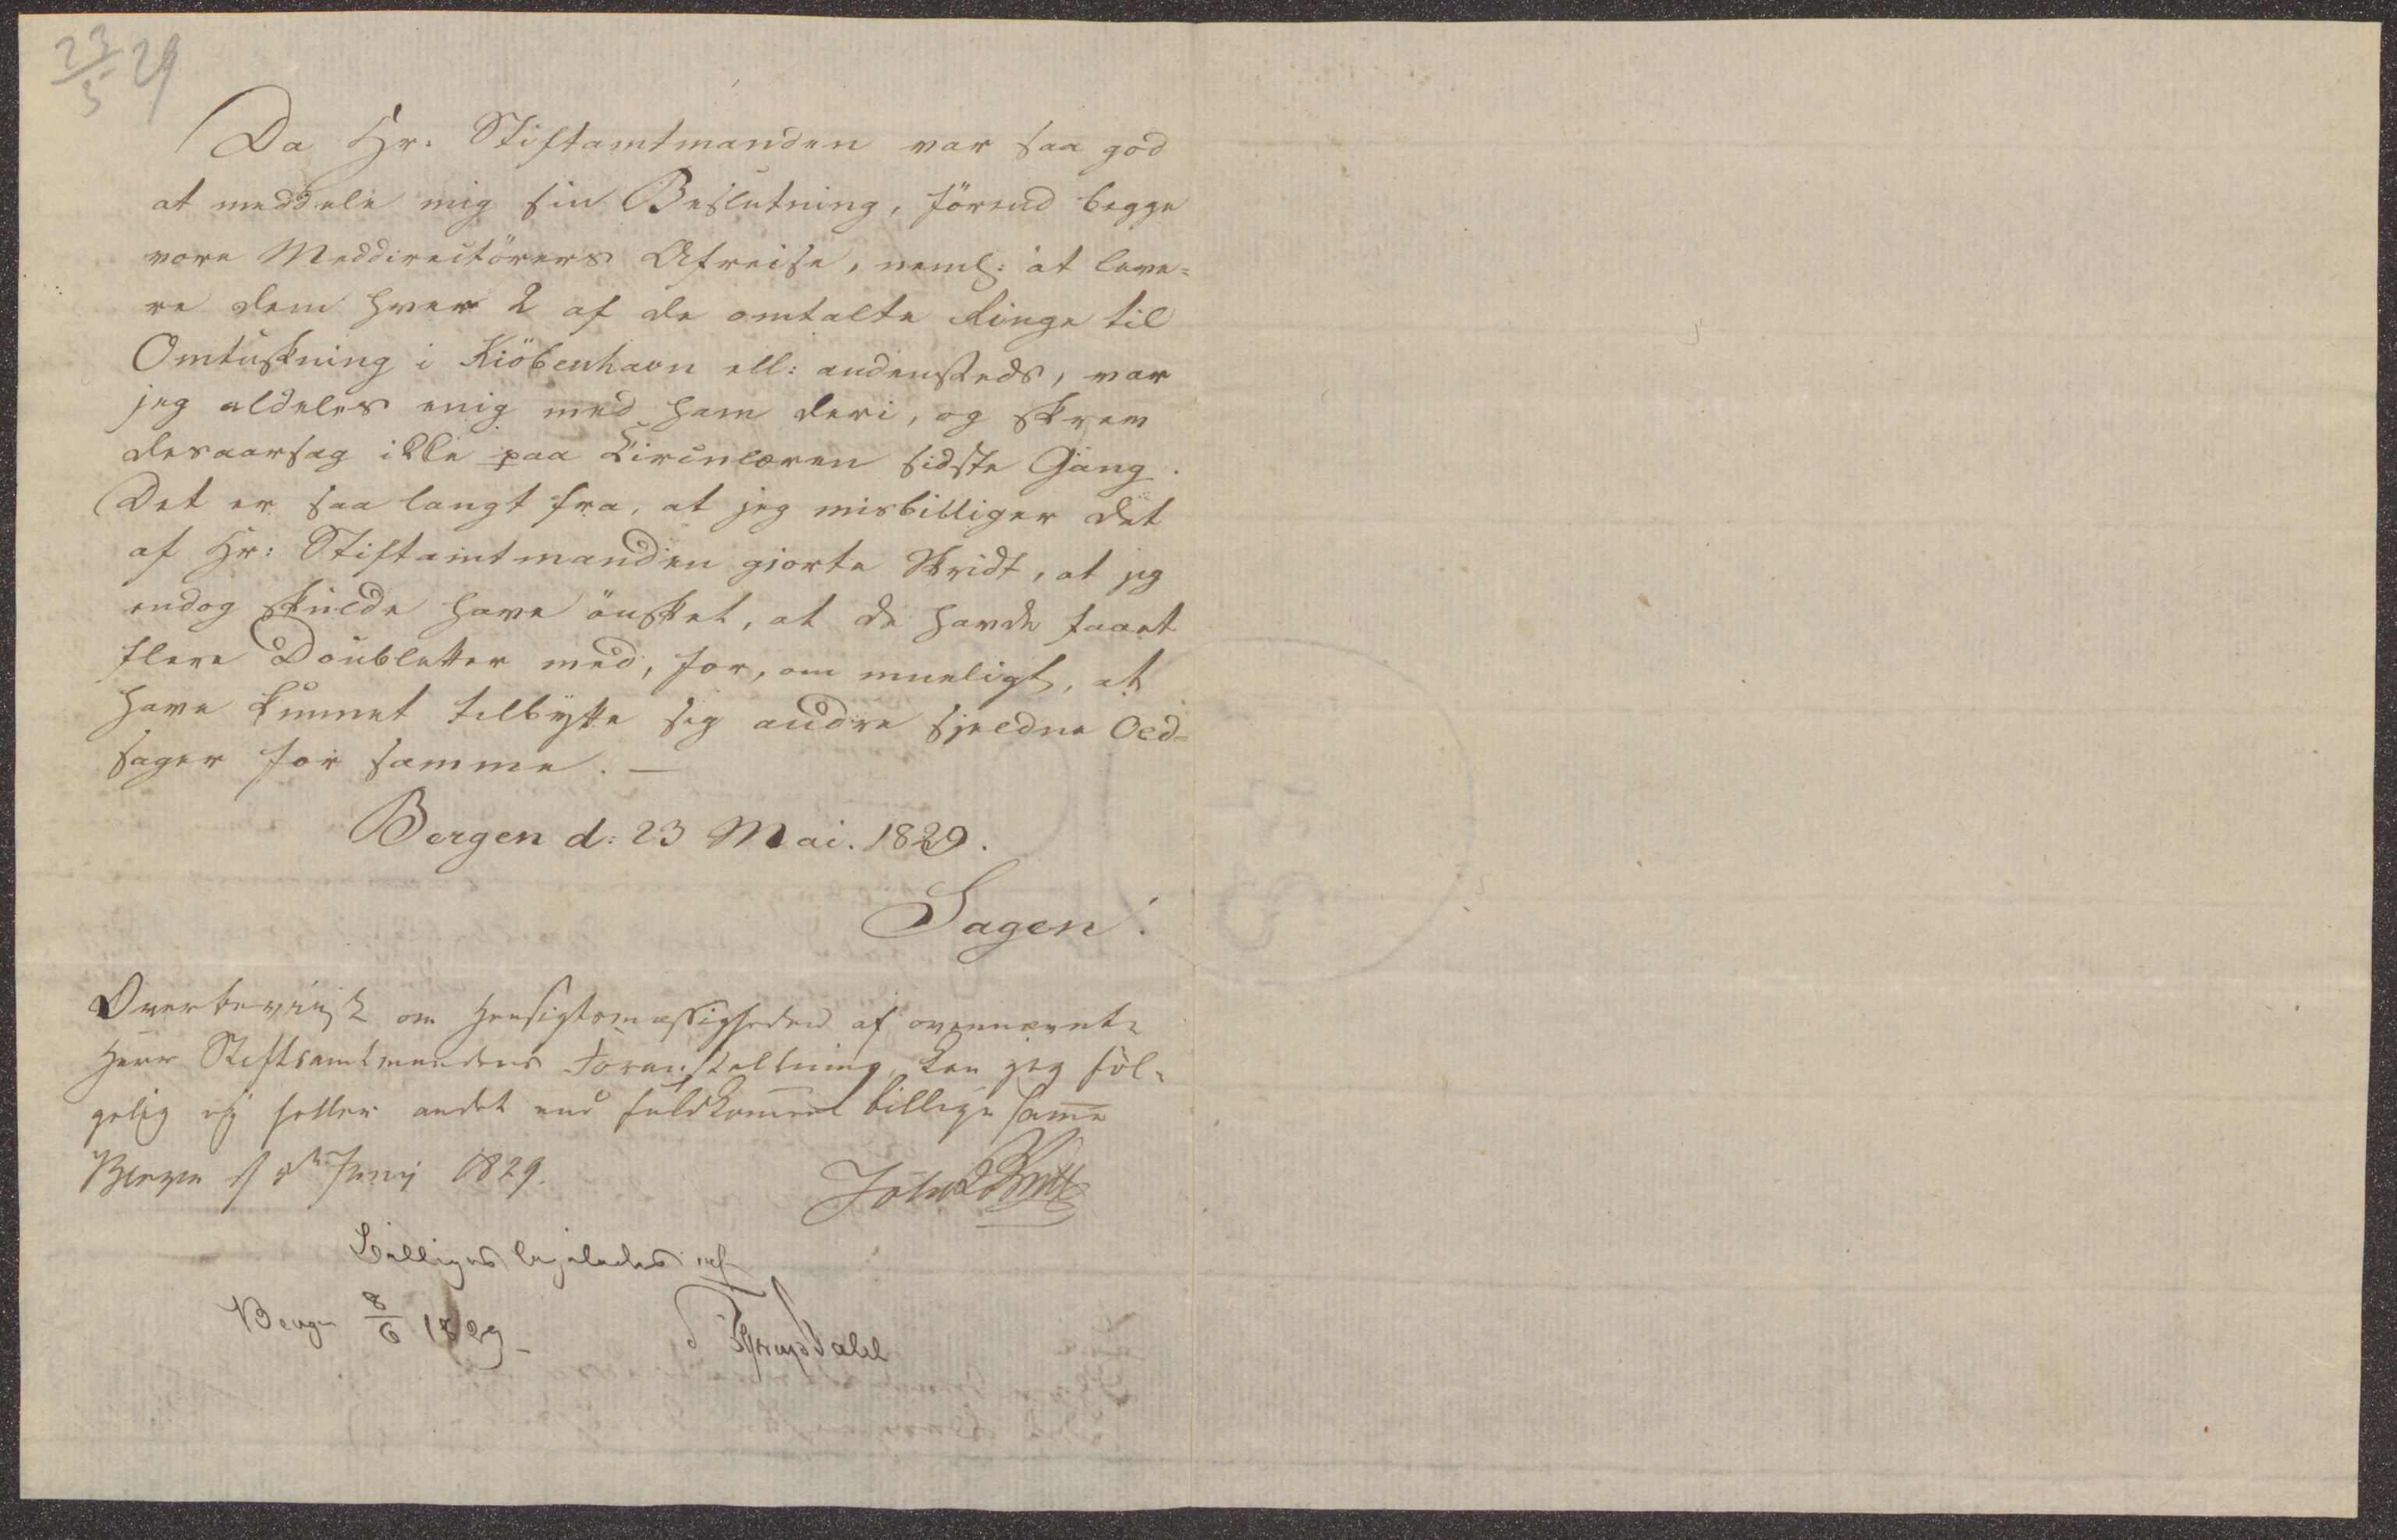 23/5 29
Da Hr: Stiftamtmanden var saa god
at meddele mig sin Beslutning, förend begge
vore Meddirectörers Afreise, neml: at leve=
re dem hver 2 af de omtalte Ringe til
Omtuskning i Kiöbenhavn ell: andensteds, var
jeg aldeles enig med ham deri, og skrev
desaarsag ikke paa Circulæren sidste Gang.
Det er saa langt fra, at jeg misbilliger det
af Hr: Stiftamtmanden giorte Skridt, at jeg
endog skulde have önsket, at de havde faaet
flere Doubletter med, for, om mueligt, at
have kunnet tilbytte sig andre sjeldne Old=
sager for samme. —
Bergen d: 23 Mai. 1829.
Sagen.
Overbeviist om Hensigtsmæssigheden af ovennævnte
Herr Stiftsamtmandens Foranstaltning, kan jeg föl=
gelig ej heller andet end fuldkommen billige samme
Bergen d 8de Junij 1829.
Billiges ligeledes af
Bergen 8/6 1829